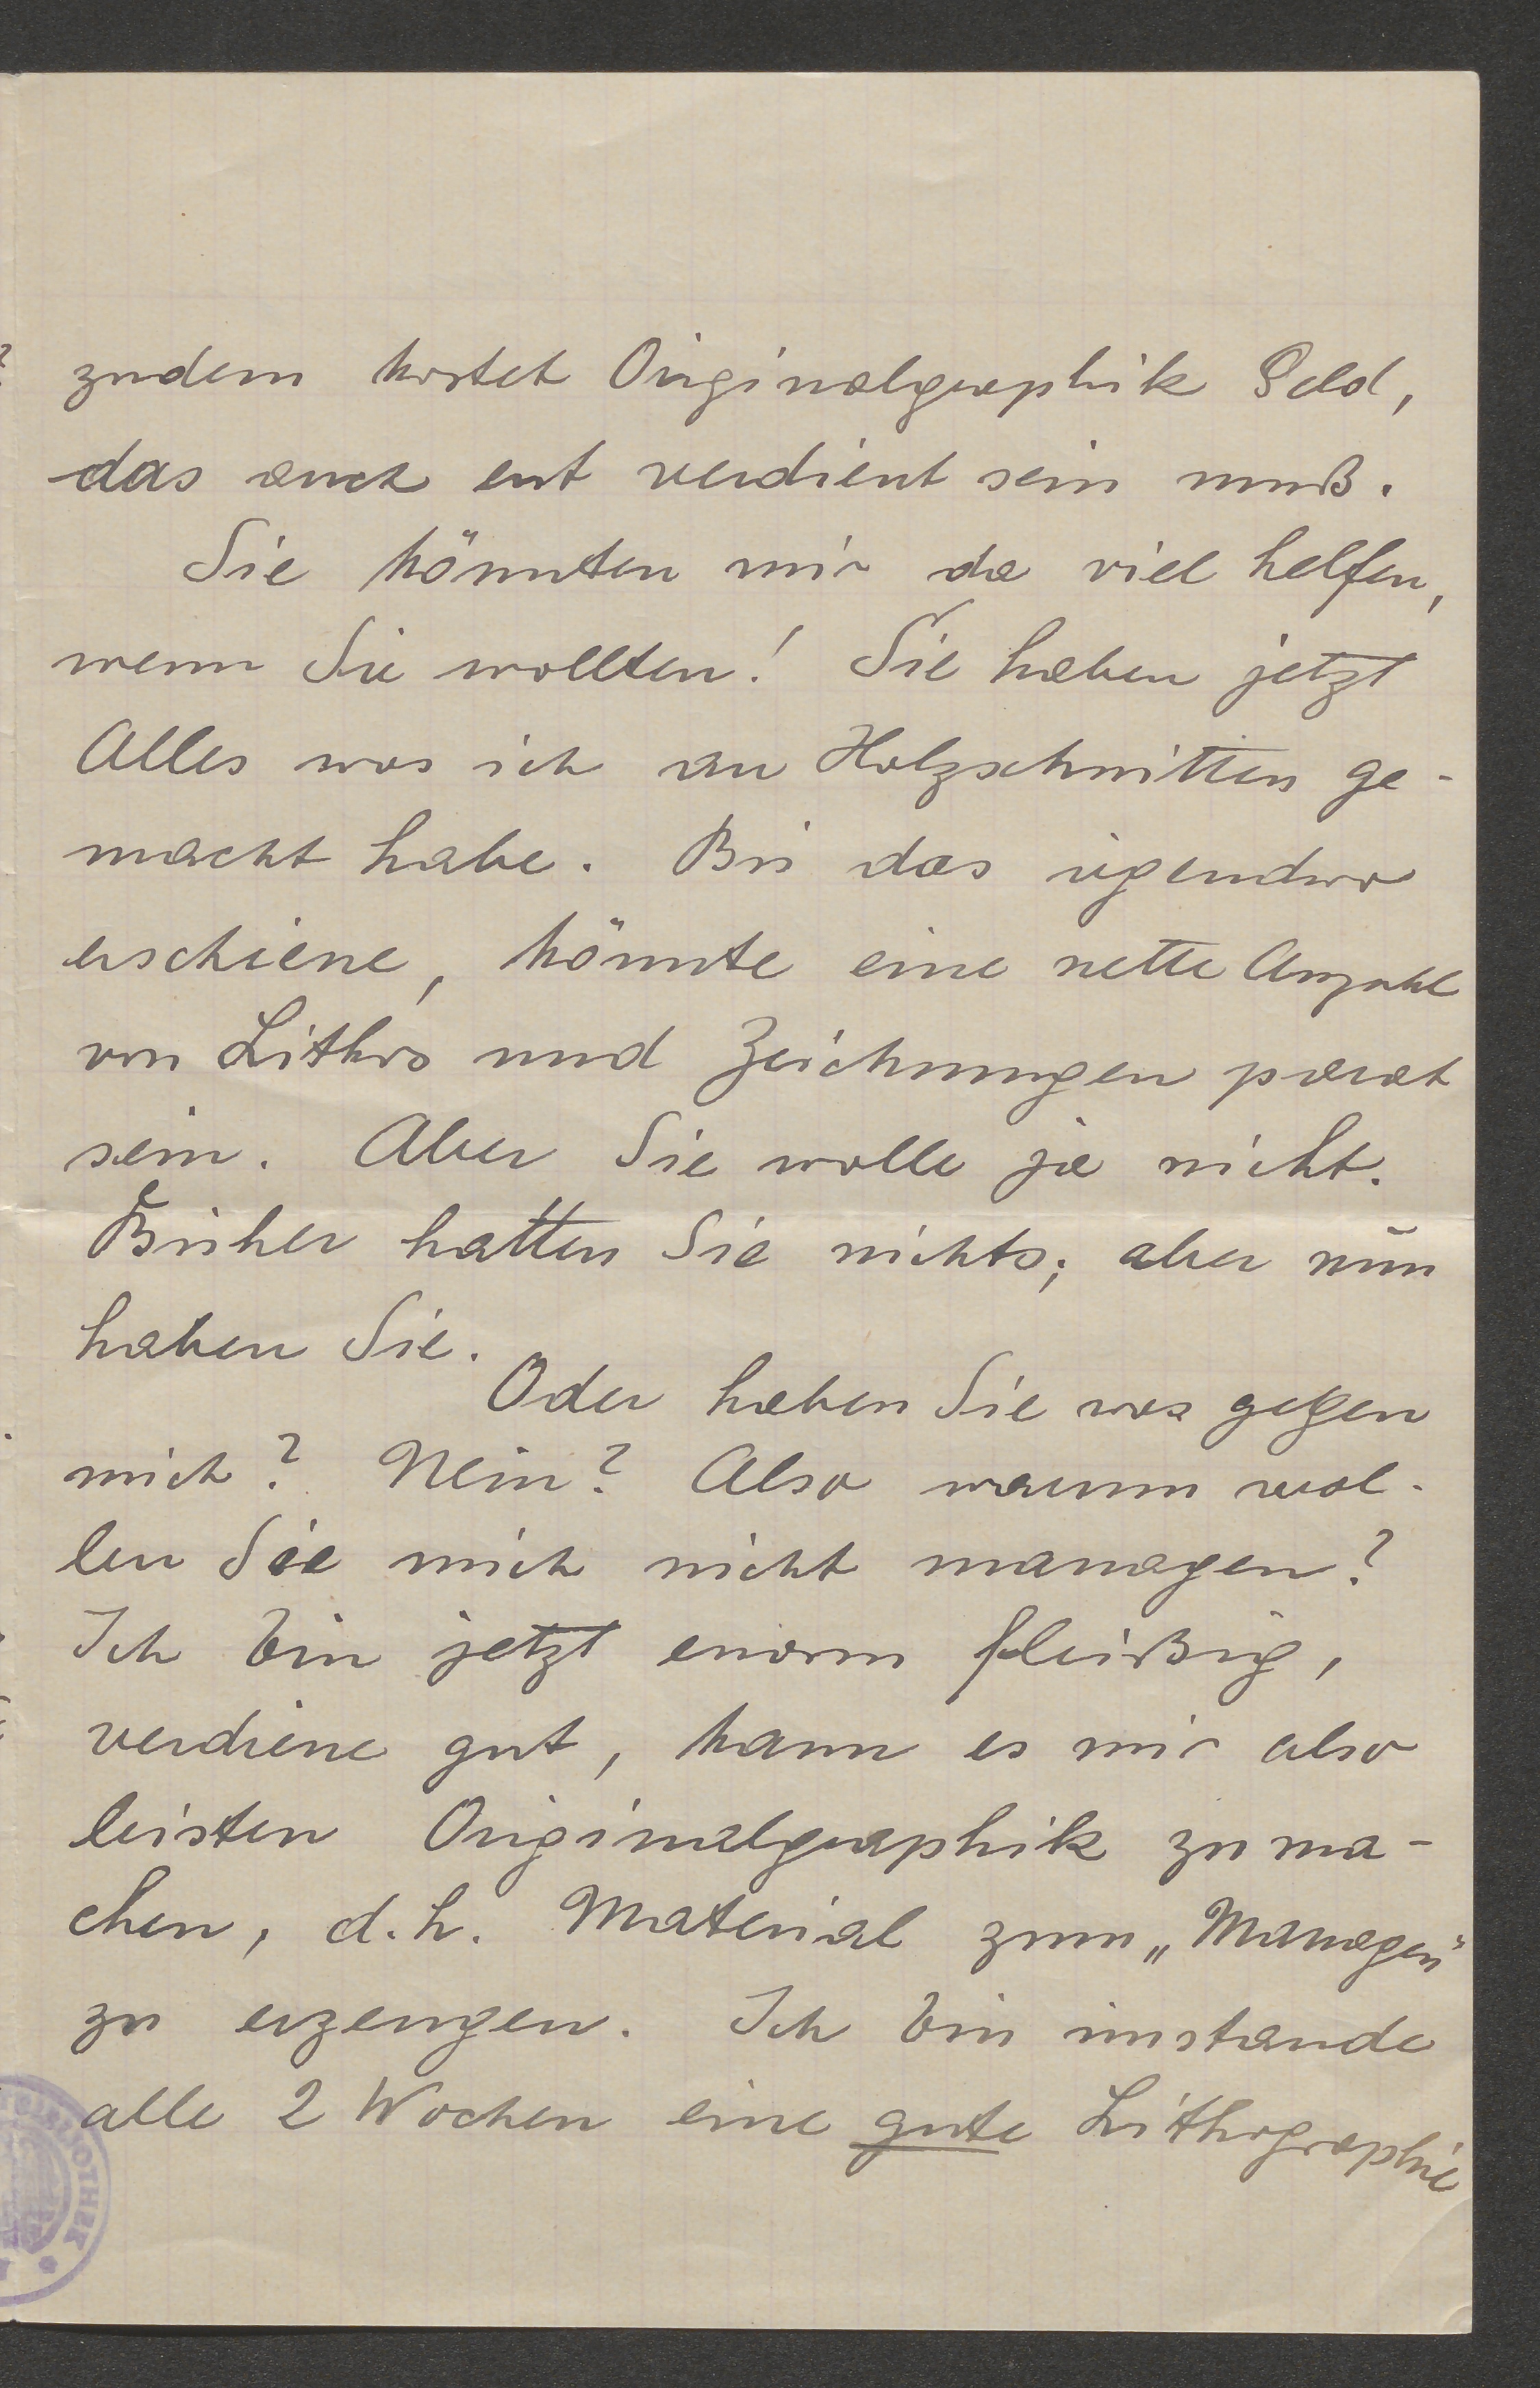 zudem kostet Originalgraphik Geld,
das auch ent verdient sein muß.
Sie könnten mir da viel helfen,
wenn Sie wollten! Sie haben jetzt
Alles was ich an Holzschnitten ge-
macht habe. Bis das irgendwo
erschiene, könnte eine nette Anzahl
von Lithos und Zeichnungen parat
sein. Aber Sie wolle ja nicht.
Bisher hatten Sie nichts; aber nun
haben Sie.
Oder haben Sie was gegen
mich? Nein? Also warum wol-
len Sie mich nicht managen?
Ich bin jetzt enorm fleißig,
verdiene gut, kann es mir also
leisten Originalgraphik zu ma-
chen, d.h. Material zum „Managen“
zu erzeugen. Ich bin imstande
alle 2 Wochen eine gute Lithographie